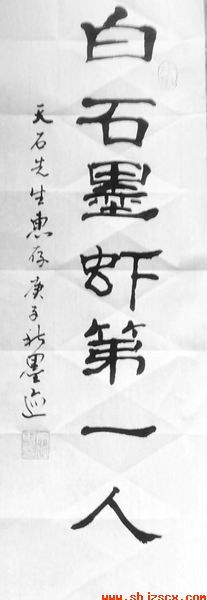 白石墨虾第一人
天石先生惠存 庚子秋墨迹
www.shizscx.com